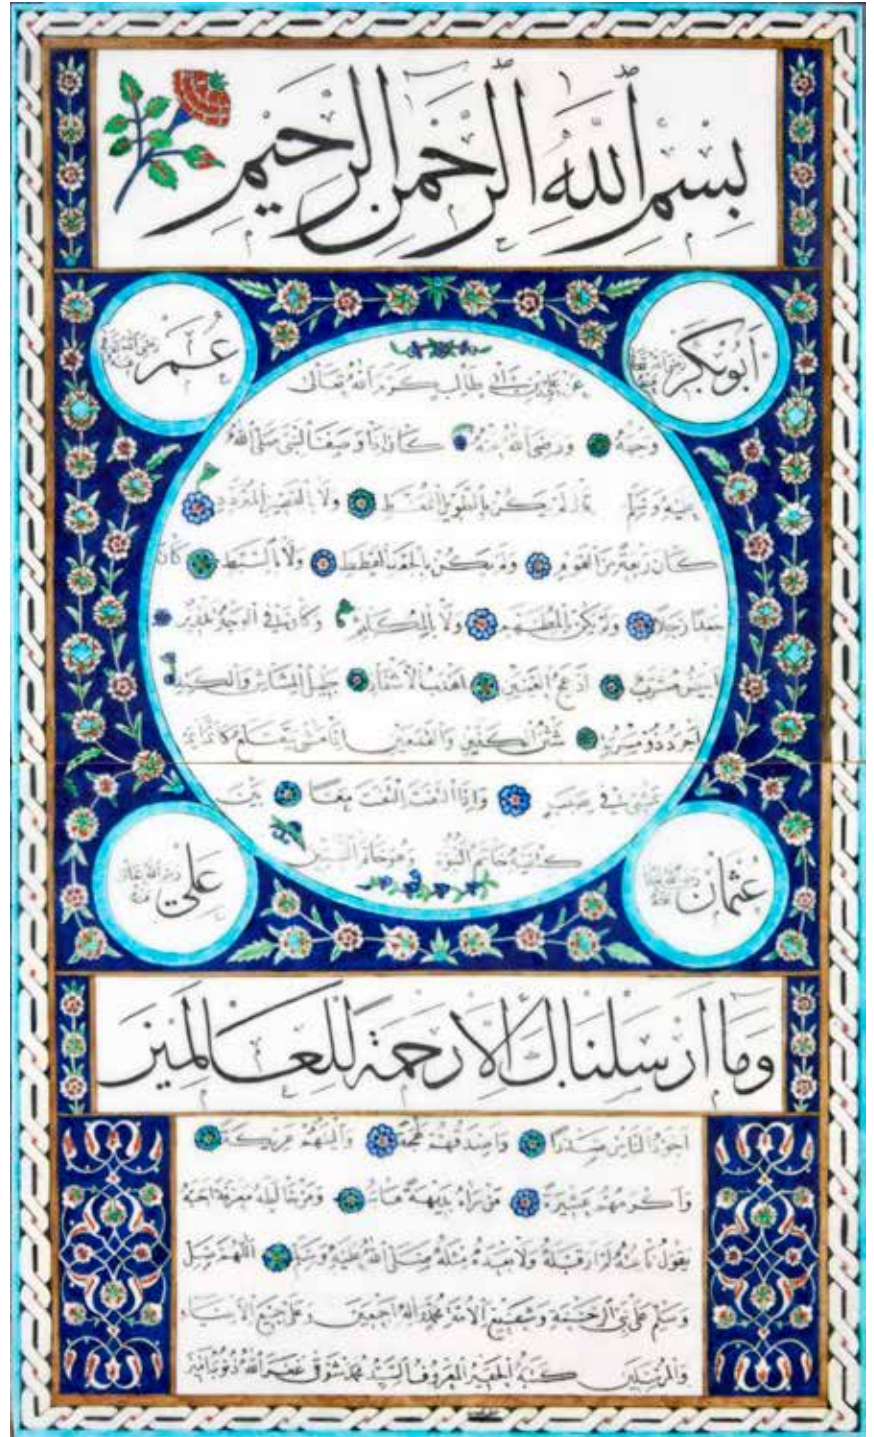 بِسْمِ اللَّهِ الرَّحْمَنِ الرَّحِيمِ
أَبُو بَكَرْ رضى الله تعالى عنه
عُمَرْ رضى الله تعالى عنه
عن علي بن ابى طالب كرم الله تعالى
وجهه ورضى الله عنه كان اذا وصف النبى صلى الله
عليه وسلم قال لم يكن بالطويل الممغط ولا بالقصير المتردد
كان ربعة من القوم ولم يكن بالجعد القطط ولا بالسبط كان
جعدا رجلا ولم يكن بالمطهم ولا بالمكلثم وكان في الوجه تدوير
ابيض مشرب ادعج العينين اهدب الاشفار جليل المشاش والكتد
اجرد ذو مسربة شثن الكفين والقدمين اذا مشى يتقلع كانما
يمشى في صبب واذا التفت التفت معا بين
كتفيه خاتم النبوة وهو خاتم النبيين
عُثْمَان رضى الله تعالى عنه
عَلِي رضى الله تعالى عنه
وَمَا أَرْسَلْنَاكَ إِلَّا رَحْمَةً لِلْعَالَمِينَ
اجود الناس صدرا واصدقهم لهجة والينهم عريكة
واكرمهم عشيرة من راه بديهة هابه ومن خالطه معرفة احبه
يقول ناعته لم ار قبله ولا بعده مثله صلى الله عليه وسلم اللهم صل
وسلم على نبي الرحمة وشفيع الامة محمد وآله اجمعين وعلى جميع الانبياء
والمرسلين كتبه الحقير المعروف السيد محمد شوقى غفر الله ذنوبه